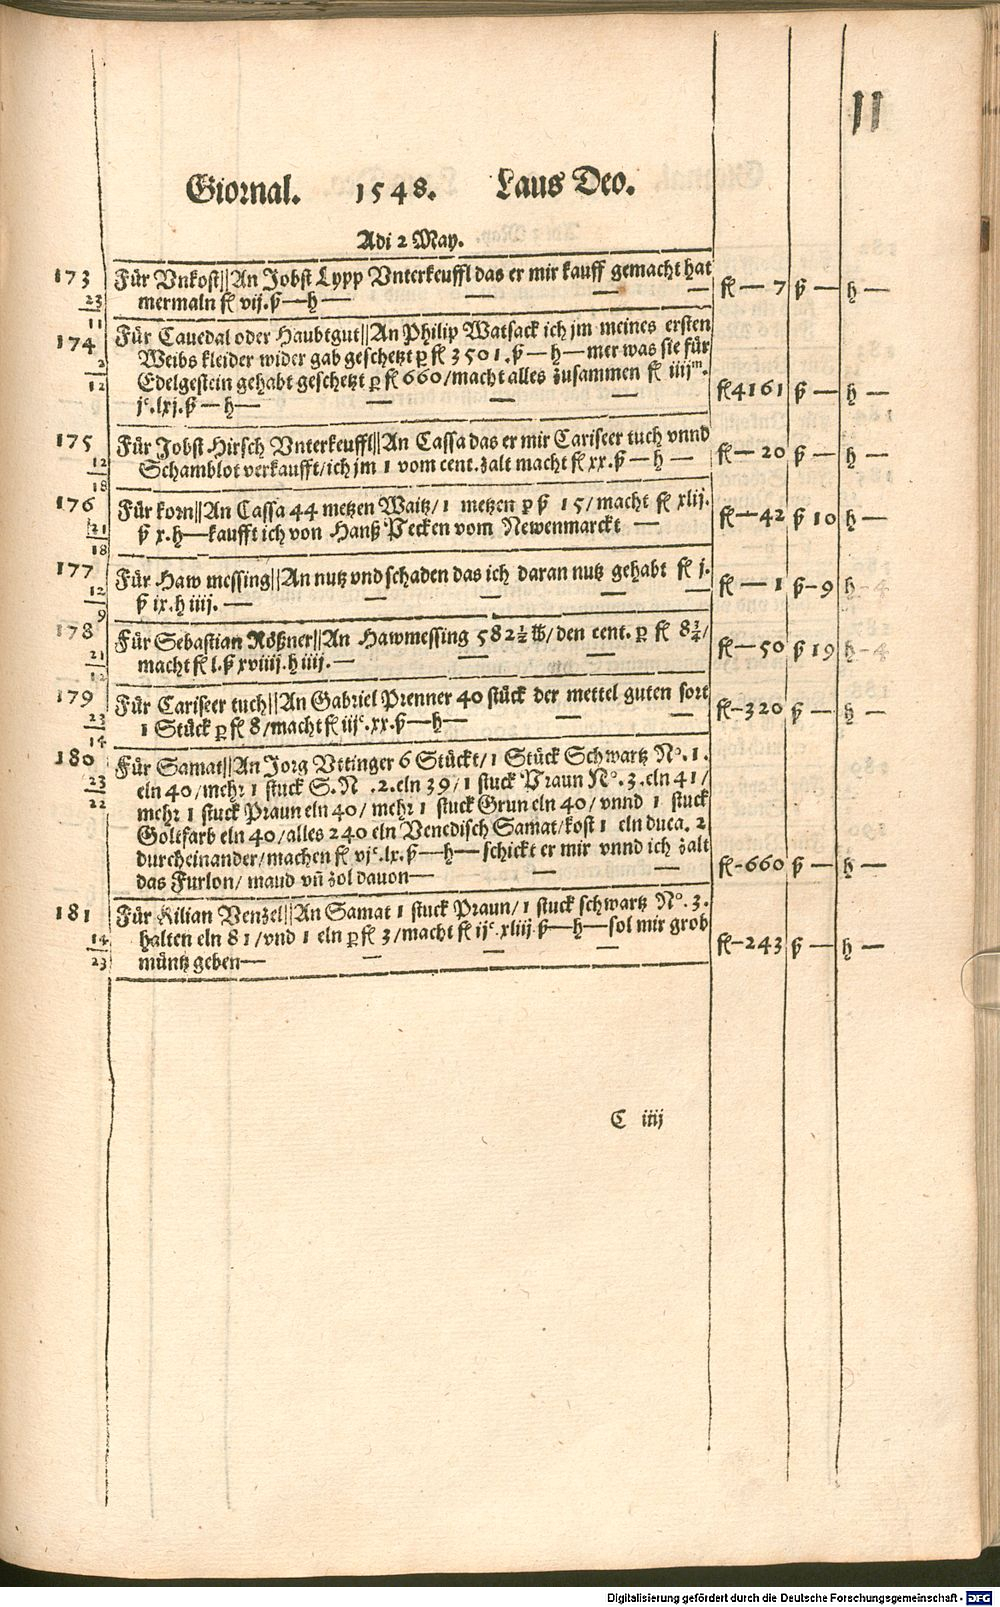 11
Giornal. 1548. Laus Deo.
Adi 2 May.
173 Für Vnkost||An Jobst Lypp Vnterkeuffl das er mir kauff gemacht hat fl — 7 ß — h —
23 mermaln fl vij.ß—h— — — —
11
174 Für Cauedal oder Haubtgut||An Philip Watsack ich jm meines ersten
Weibs kleider wider gab geschetzt ꝑ fl 3501.ß—h—mer was sie für
2 Edelgestein gehabt geschetzt ꝑ fl 660/macht alles zusammen fl iiijᵐ.
12 jᶜ.lxj.ß—h— — — — fl 4161 ß — h —
175 Für Jobst Hirsch Vnterkeuffl||An Cassa das er mir Cariseer tuch vnnd
12 Schamblot verkaufft/ich jm 1 vom cent.zalt macht fl xx.ß—h— fl — 20 ß — h —
18
176 Für korn||An Cassa 44 metzen Waitz/1 metzen ꝑ ß 15/macht fl xlij.
21 ß x.h—kaufft ich von Hanß Pecken vom Newenmarckt — fl — 42 ß 10 h —
18
177 Für Haw messing||An nutz vnd schaden das ich daran nutz gehabt fl j.
12 ß ix.h iiij.— — — — fl — 1 ß-9 h-4
9
178 Für Sebastian Rößner||An Hawmessing 582½ ℔/den cent. ꝑ fl 8¾/
21 macht fl l.ß xviiij.h iiij.— — — fl — 50 ß 19 h-4
12
179 Für Cariseer tuch||An Gabriel Prenner 40 stück der mettel guten sort
23 1 Stück ꝑ fl 8/macht fl iijᶜ.xx.ß—h— — — fl-320 ß — h —
14
180 Für Samat||An Jorg Vttinger 6 Stückt/1 Stück Schwartz Nº.1.
23 eln 40/mehr 1 stuck S.N .2.eln 39/1 stuck Praun Nº.3.eln 41/
22 mehr 1 stuck Praun eln 40/mehr 1 stuck Grun eln 40/vnnd 1 stuck
Goltfarb eln 40/alles 240 eln Venedisch Samat/kost 1 eln duca. 2
durcheinander/machen fl vjᶜ.lx.ß—h—schickt er mir vnnd ich zalt
das Furlon/ maud vñ zol dauon— — — fl-660 ß — h —
181 Für Kilian Venzel||An Samat 1 stuck Praun/1 stuck schwartz Nº.3.
14 halten eln 81/vnd 1 eln ꝑ fl 3/macht fl ijᶜ.xliij ß—h—sol mir grob
23 müntz geben— — — — fl-243 ß — h —
C iiij
Digitalisierung gefördert durch die Deutsche Forschungsgemeinschaft - DFG